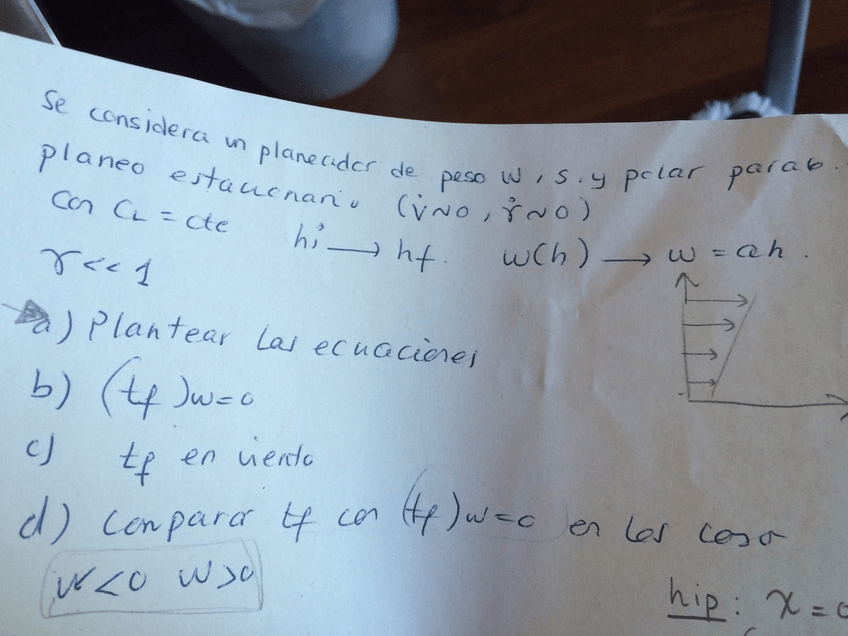 Se considera un planeador de peso W, S. y polar parab.
planeo estacionario (v̇~0, γ̇~0)
con CL = cte hi → hf. w(h) → w = ah.
γ<<1
a) Plantear las ecuaciones
b) (tf)w=0
c) tf en viento
d) Comparar tf con (tf)w=0 en los caso
w<0 w>0
hip: x=0